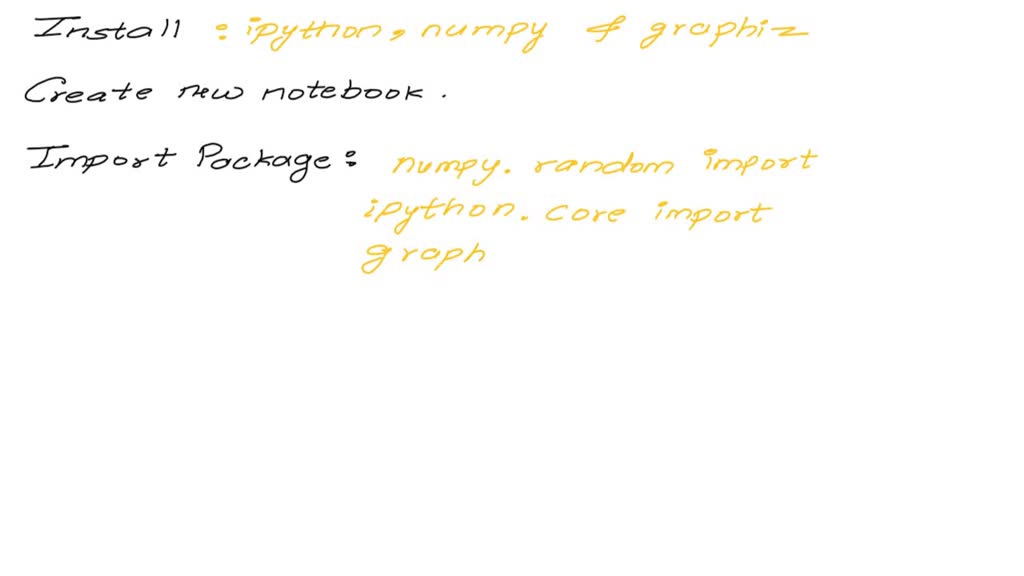 Install : ipython, numpy & graphiz
Create new notebook.
Import Package: numpy. random import
ipython. core import
graph